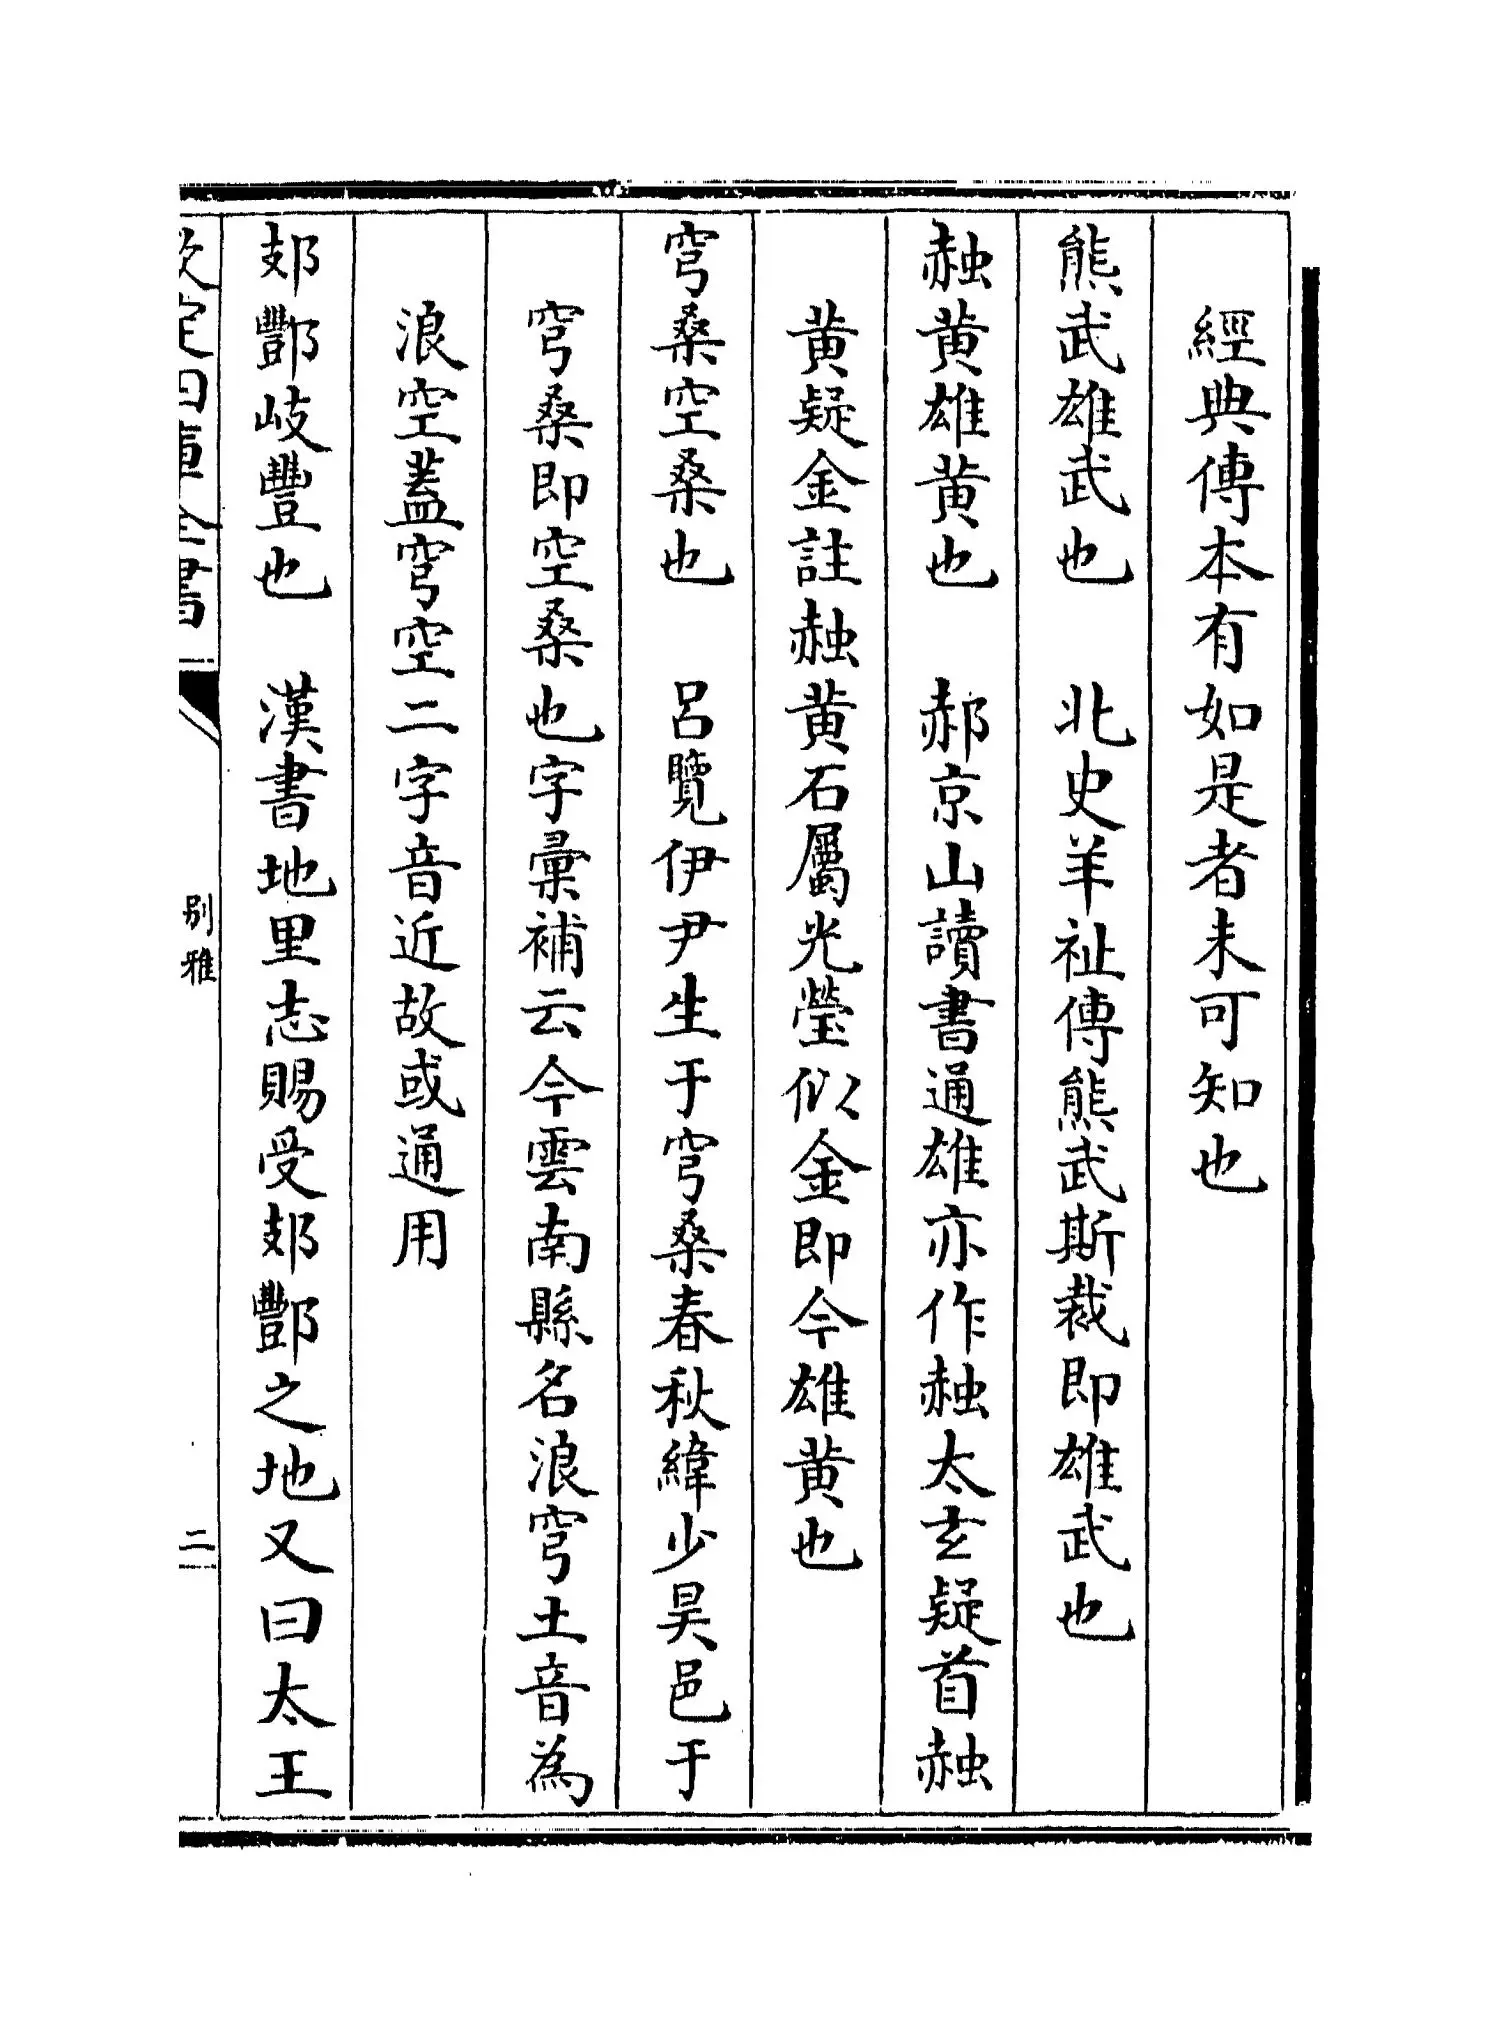 經典傳本有如是者未可知也
熊武雄武也　北史羊祉傳熊武斯裁即雄武也
䖝黄雄黄也　郝京山讀書通雄亦作䖝太玄疑首䖝
黄疑金註䖝黄石屬光瑩似金即今雄黄也
穹桑空桑也　呂覽伊尹生于穹桑春秋緯少昊邑于
穹桑即空桑也字彚補云今雲南縣名浪穹土音為
浪空蓋穹空二字音近故或通用
郂酆岐豐也　漢書地里志賜受郂酆之地又曰太王
欽定四庫全書
别雅
二